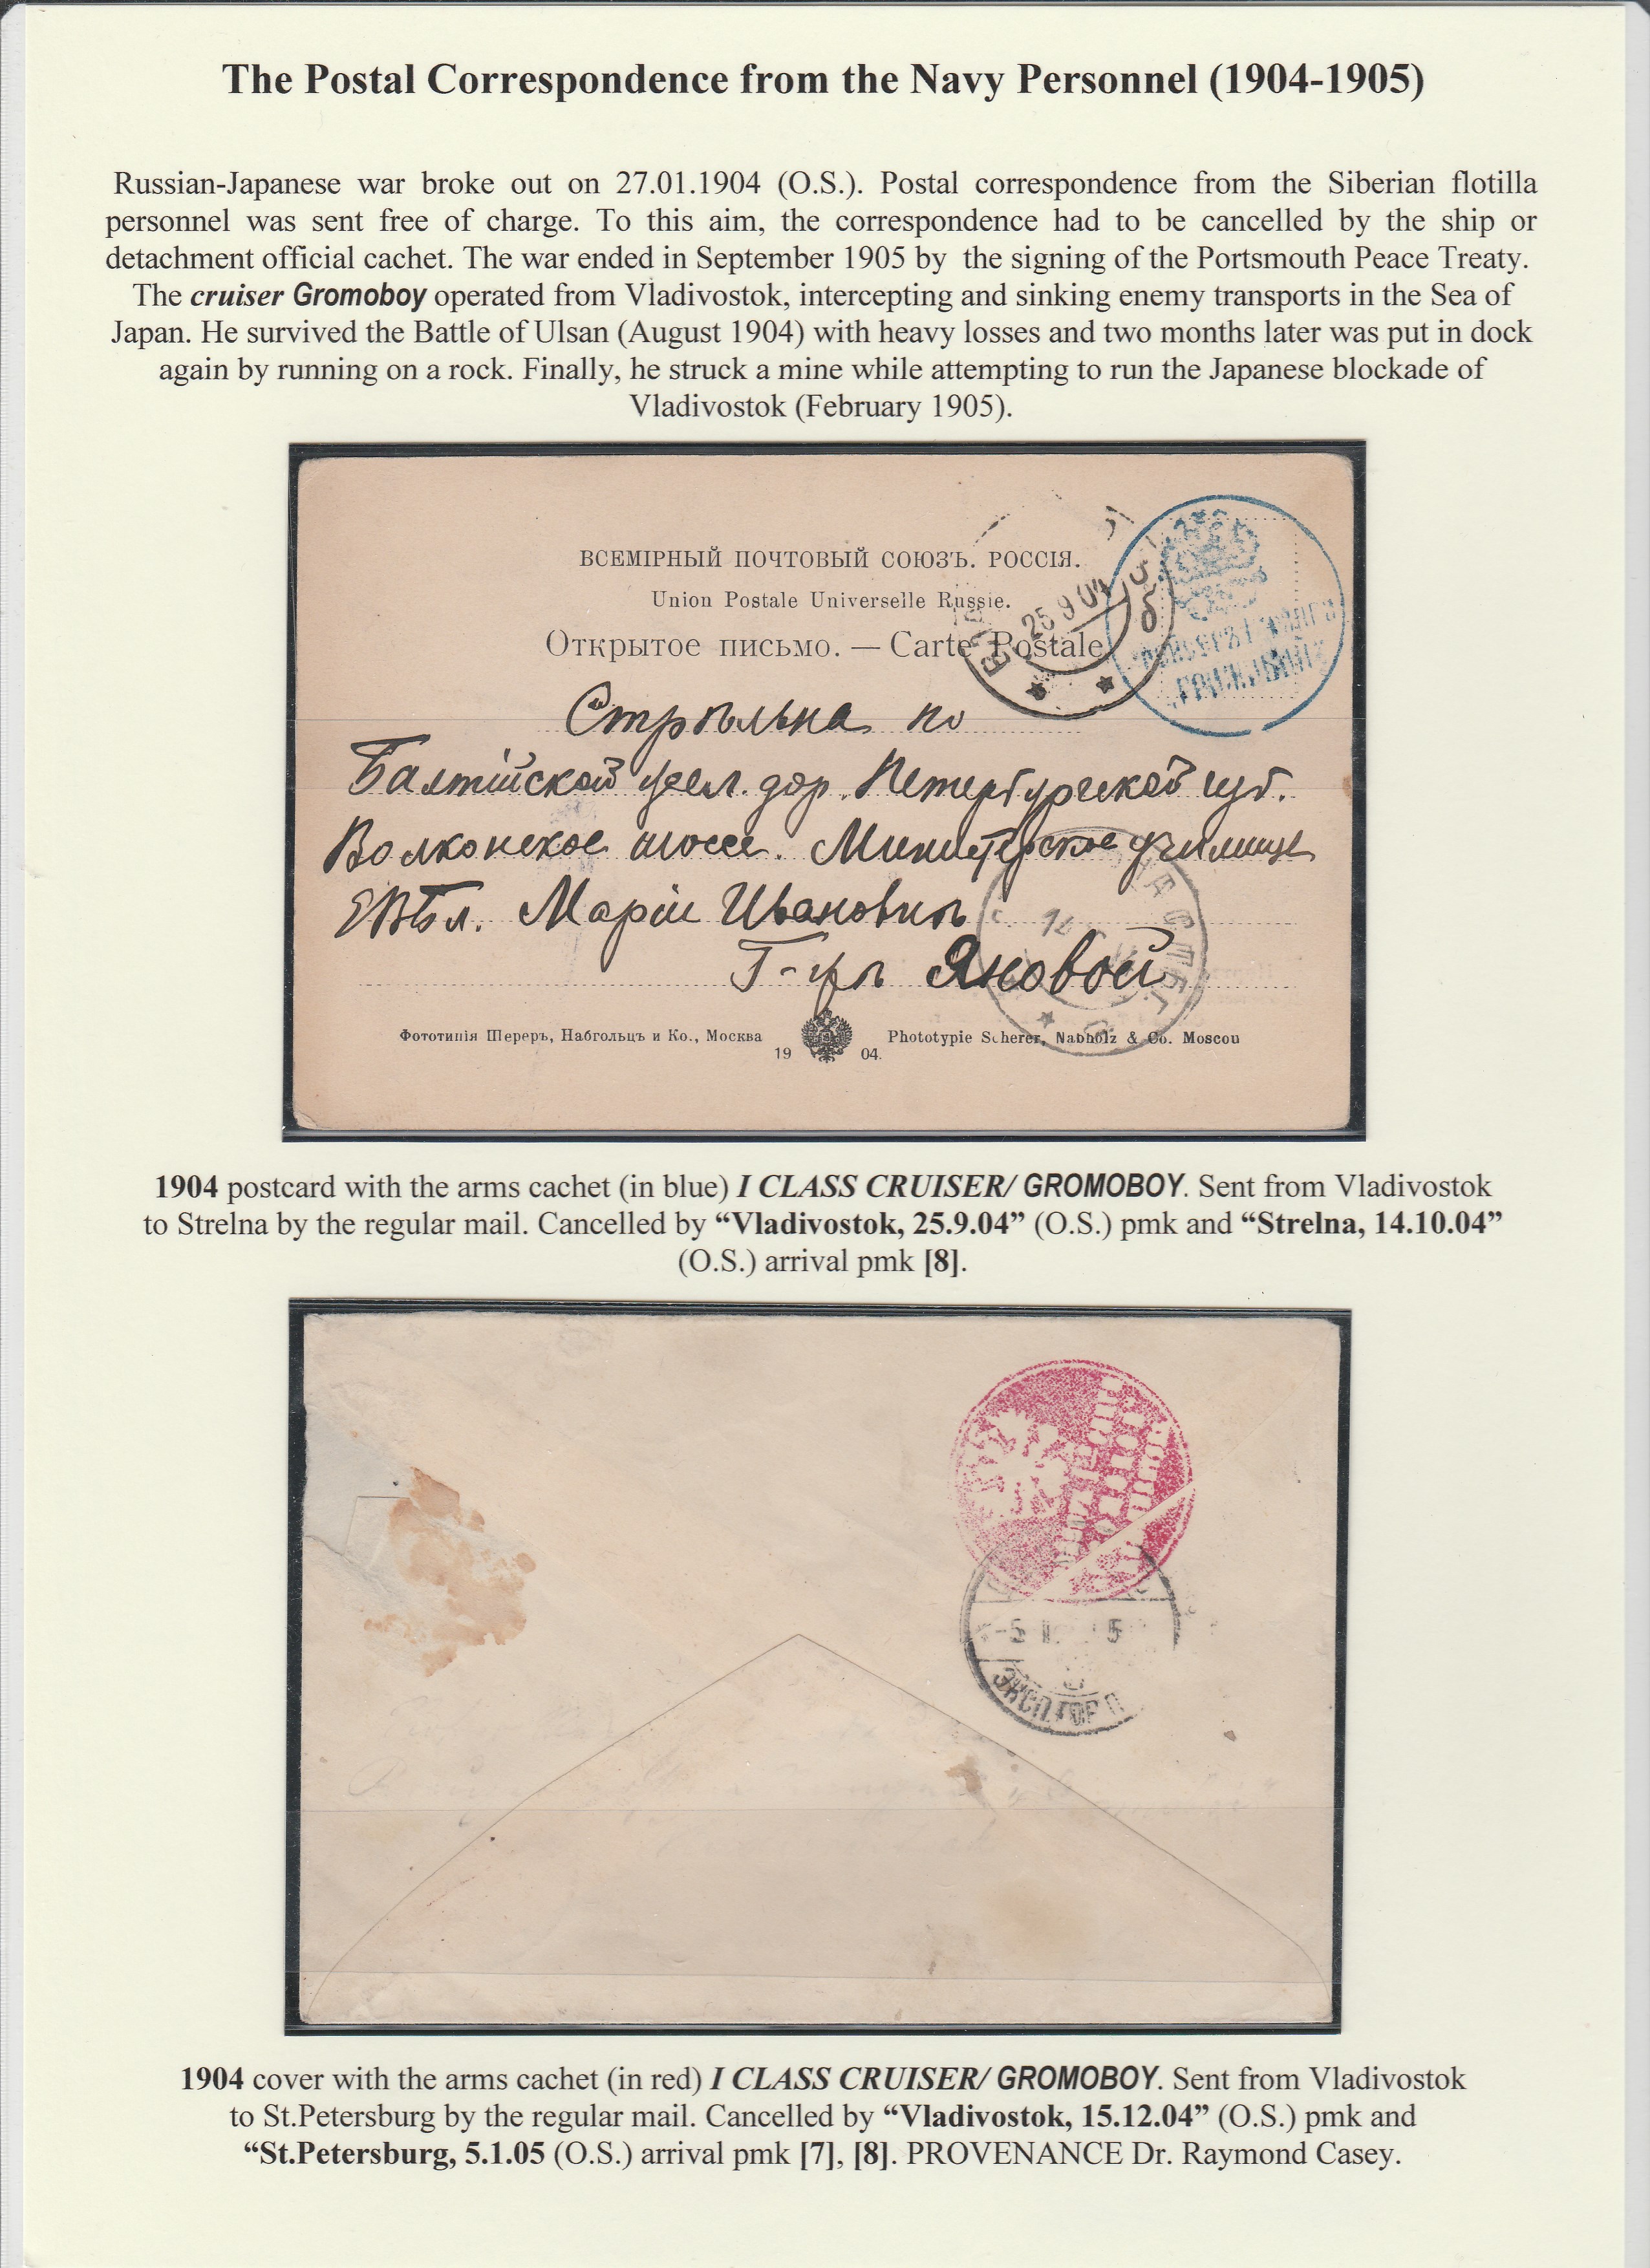 The Postal Correspondence from the Navy Personnel (1904-1905)
Russian-Japanese war broke out on 27.01.1904 (O.S.). Postal correspondence from the Siberian flotilla
personnel was sent free of charge. To this aim, the correspondence had to be cancelled by the ship or
detachment official cachet. The war ended in September 1905 by the signing of the Portsmouth Peace Treaty.
The cruiser Gromoboy operated from Vladivostok, intercepting and sinking enemy transports in the Sea of
Japan. He survived the Battle of Ulsan (August 1904) with heavy losses and two months later was put in dock
again by running on a rock. Finally, he struck a mine while attempting to run the Japanese blockade of
Vladivostok (February 1905).
ВСЕМІРНЫЙ ПОЧТОВЫЙ СОЮЗЪ. РОССІЯ.
Union Postale Universelle Russie.
Открытое письмо. — Carte Postale
25 9 04
Стрѣльна по
Балтійской жел. дор. Петербургской губ.
Волконское шоссе. Министерское училище
ЕВБл. Маріи Ивановнѣ
Г-жѣ Яновой
Фототипія Шереръ, Набгольцъ и Ко., Москва
1904.
Phototypie Scherer, Nabholz & Co. Moscou
1904 postcard with the arms cachet (in blue) I CLASS CRUISER/ GROMOBOY. Sent from Vladivostok
to Strelna by the regular mail. Cancelled by “Vladivostok, 25.9.04” (O.S.) pmk and “Strelna, 14.10.04”
(O.S.) arrival pmk [8].
ЭКСП.ГОР П
1904 cover with the arms cachet (in red) I CLASS CRUISER/ GROMOBOY. Sent from Vladivostok
to St.Petersburg by the regular mail. Cancelled by “Vladivostok, 15.12.04” (O.S.) pmk and
“St.Petersburg, 5.1.05 (O.S.) arrival pmk [7], [8]. PROVENANCE Dr. Raymond Casey.